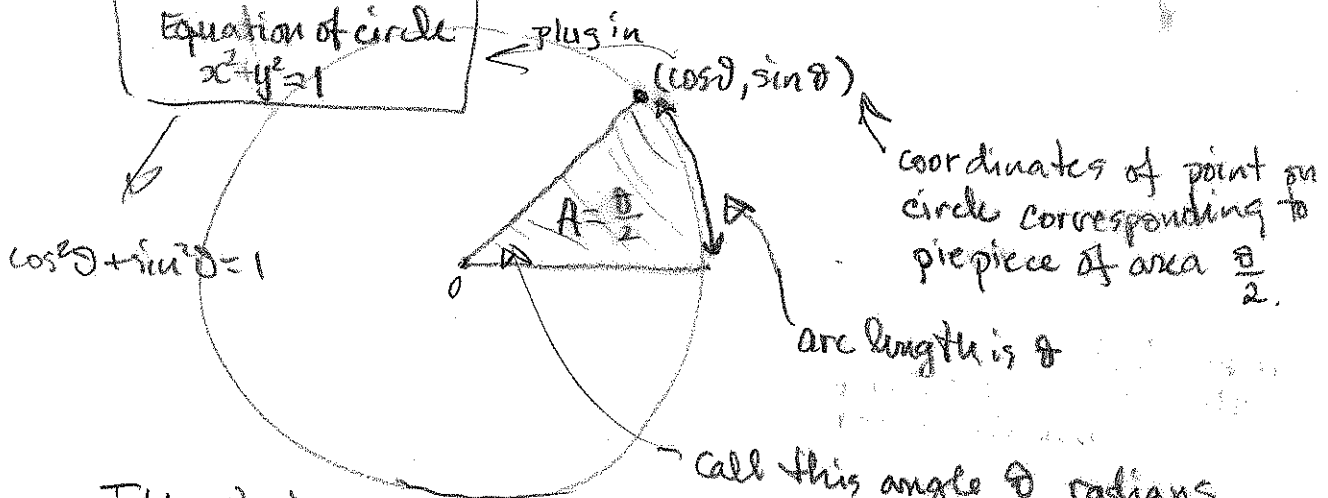 Equation of circle
x²+y²=1
plug in
(cosθ, sinθ)
coordinates of point on
circle corresponding to
piepiece of area θ/2.
A=θ/2
cos²θ+sin²θ=1
0
arc length is θ
call this angle θ radians